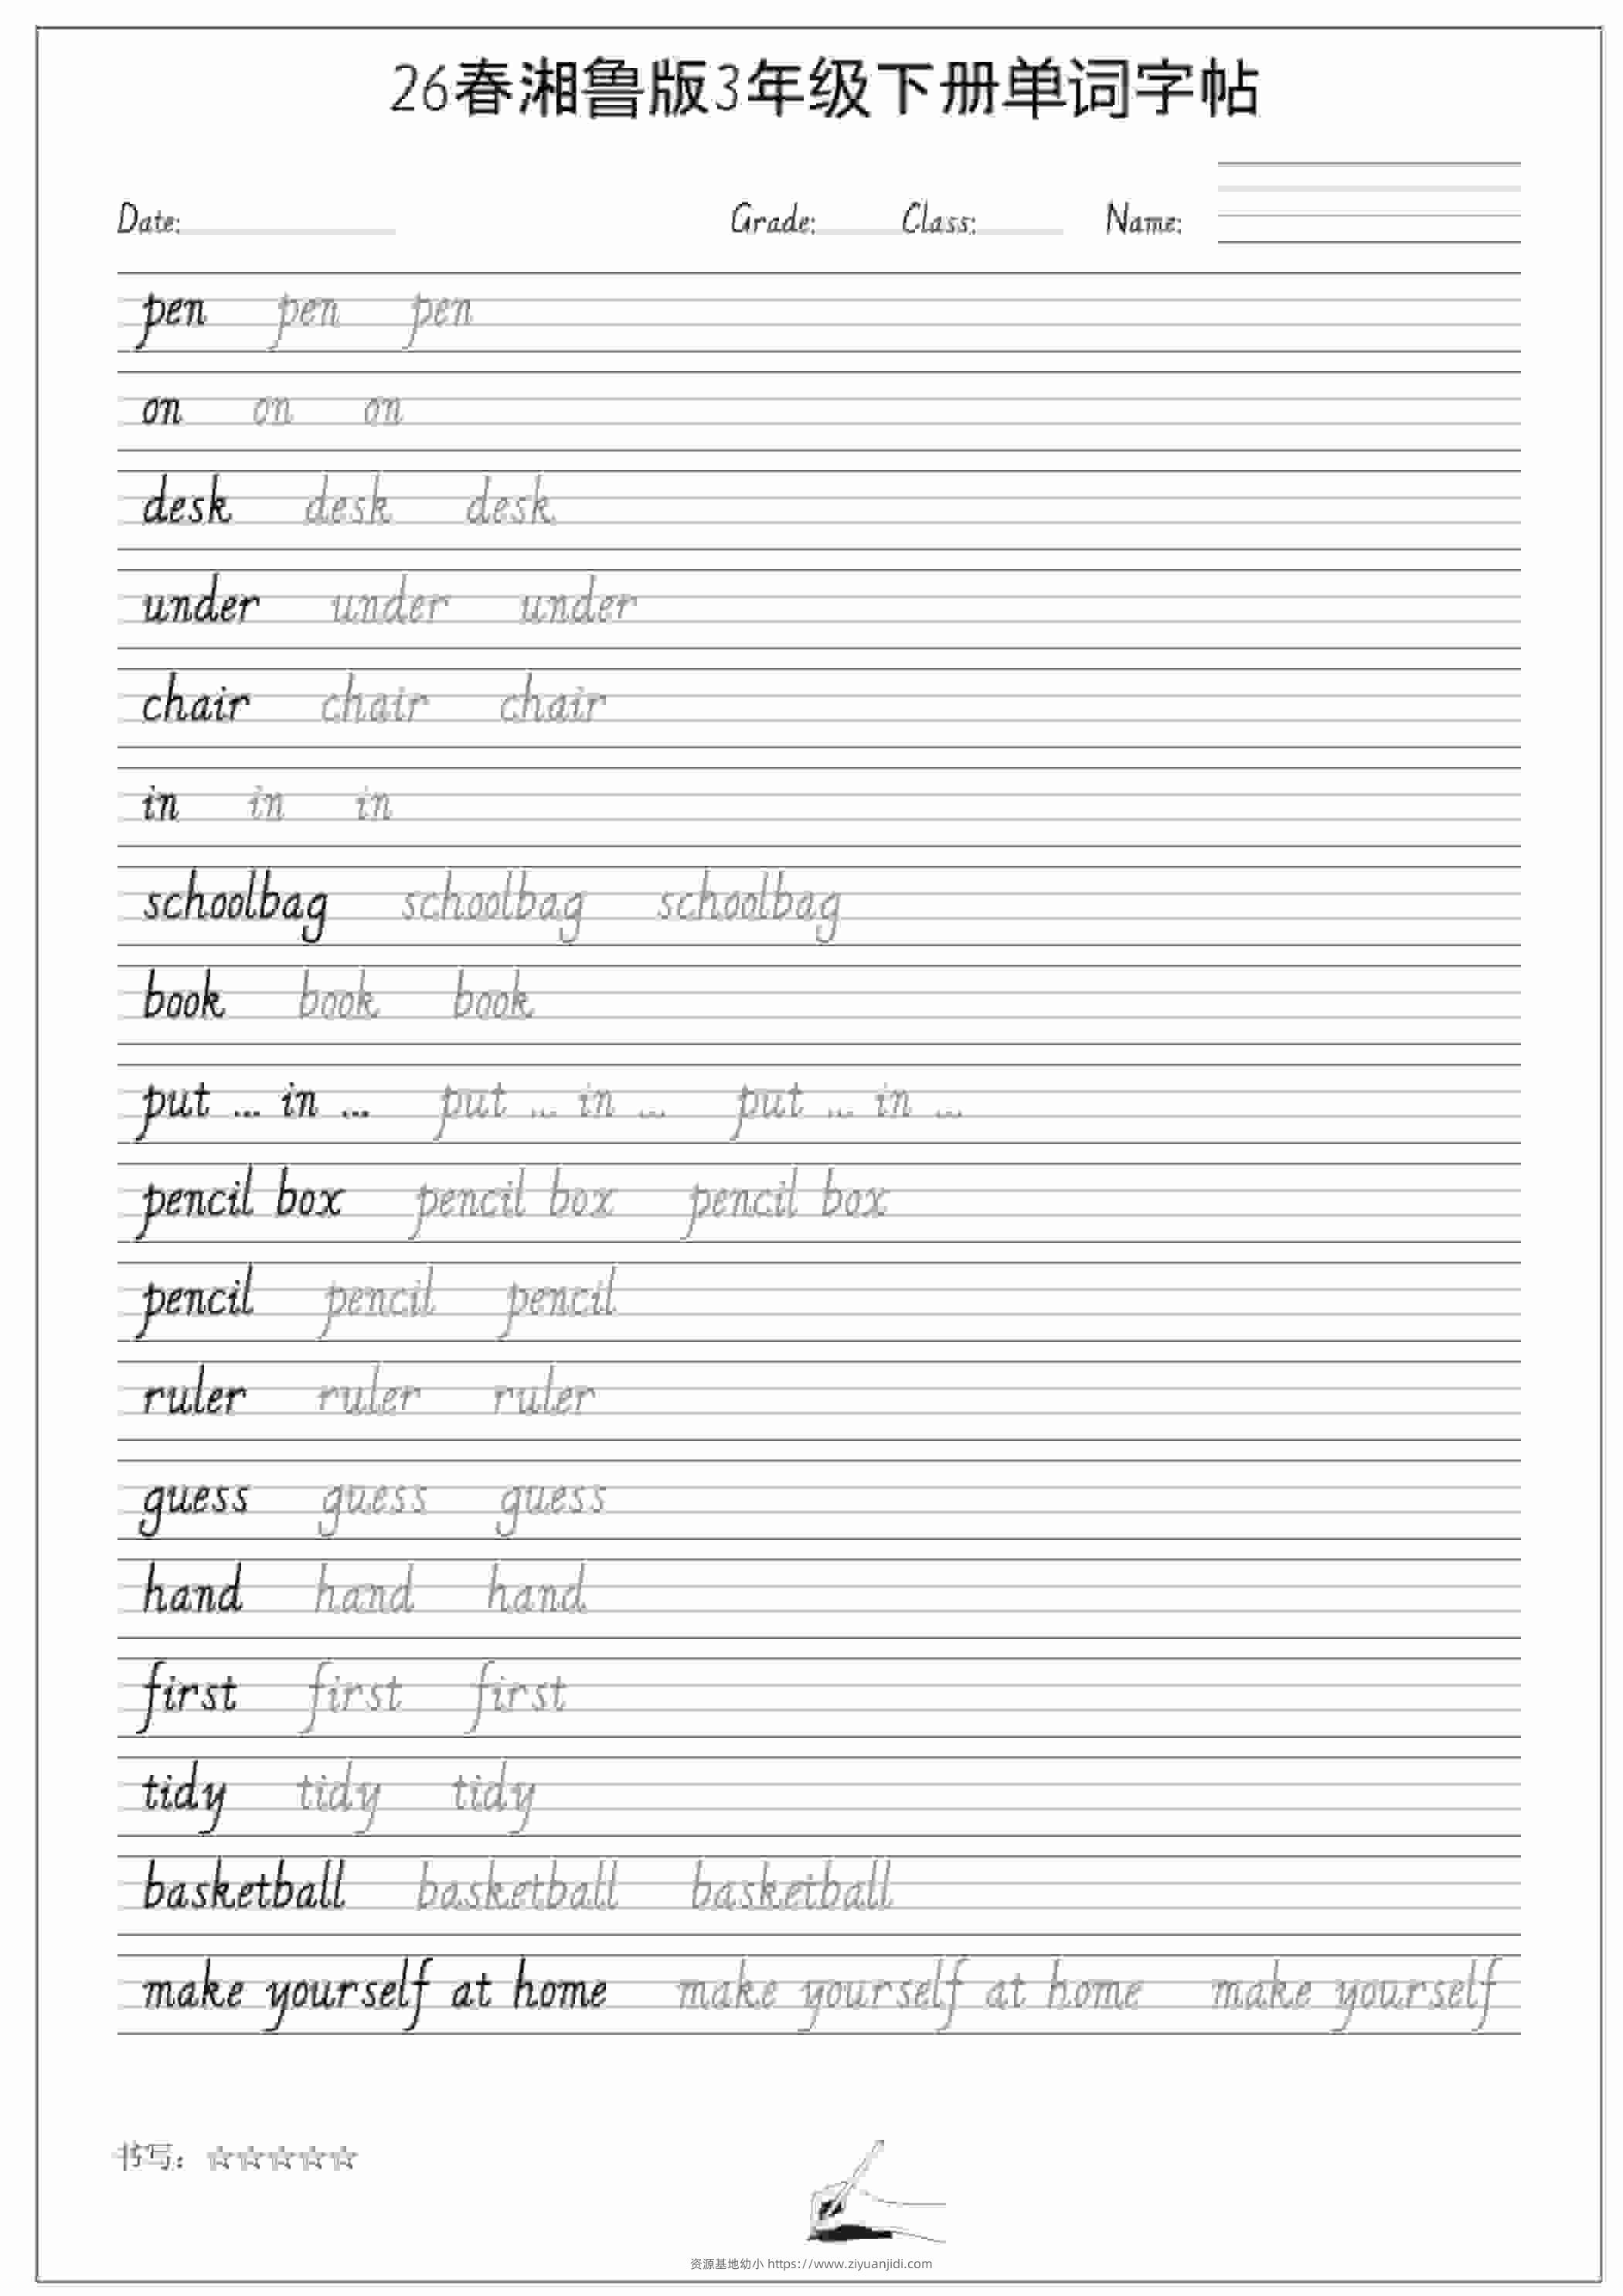 26春湘鲁版3年级下册单词字帖
Date: Grade: Class: Name:
pen pen pen
on on on
desk desk desk
under under under
chair chair chair
in in in
schoolbag schoolbag schoolbag
book book book
put ... in ... put ... in ... put ... in ...
pencil box pencil box pencil box
pencil pencil pencil
ruler ruler ruler
guess guess guess
hand hand hand
first first first
tidy tidy tidy
basketball basketball basketball
make yourself at home make yourself at home make yourself
书写：☆☆☆☆☆
资源基地幼小 https://www.ziyuanjidi.com